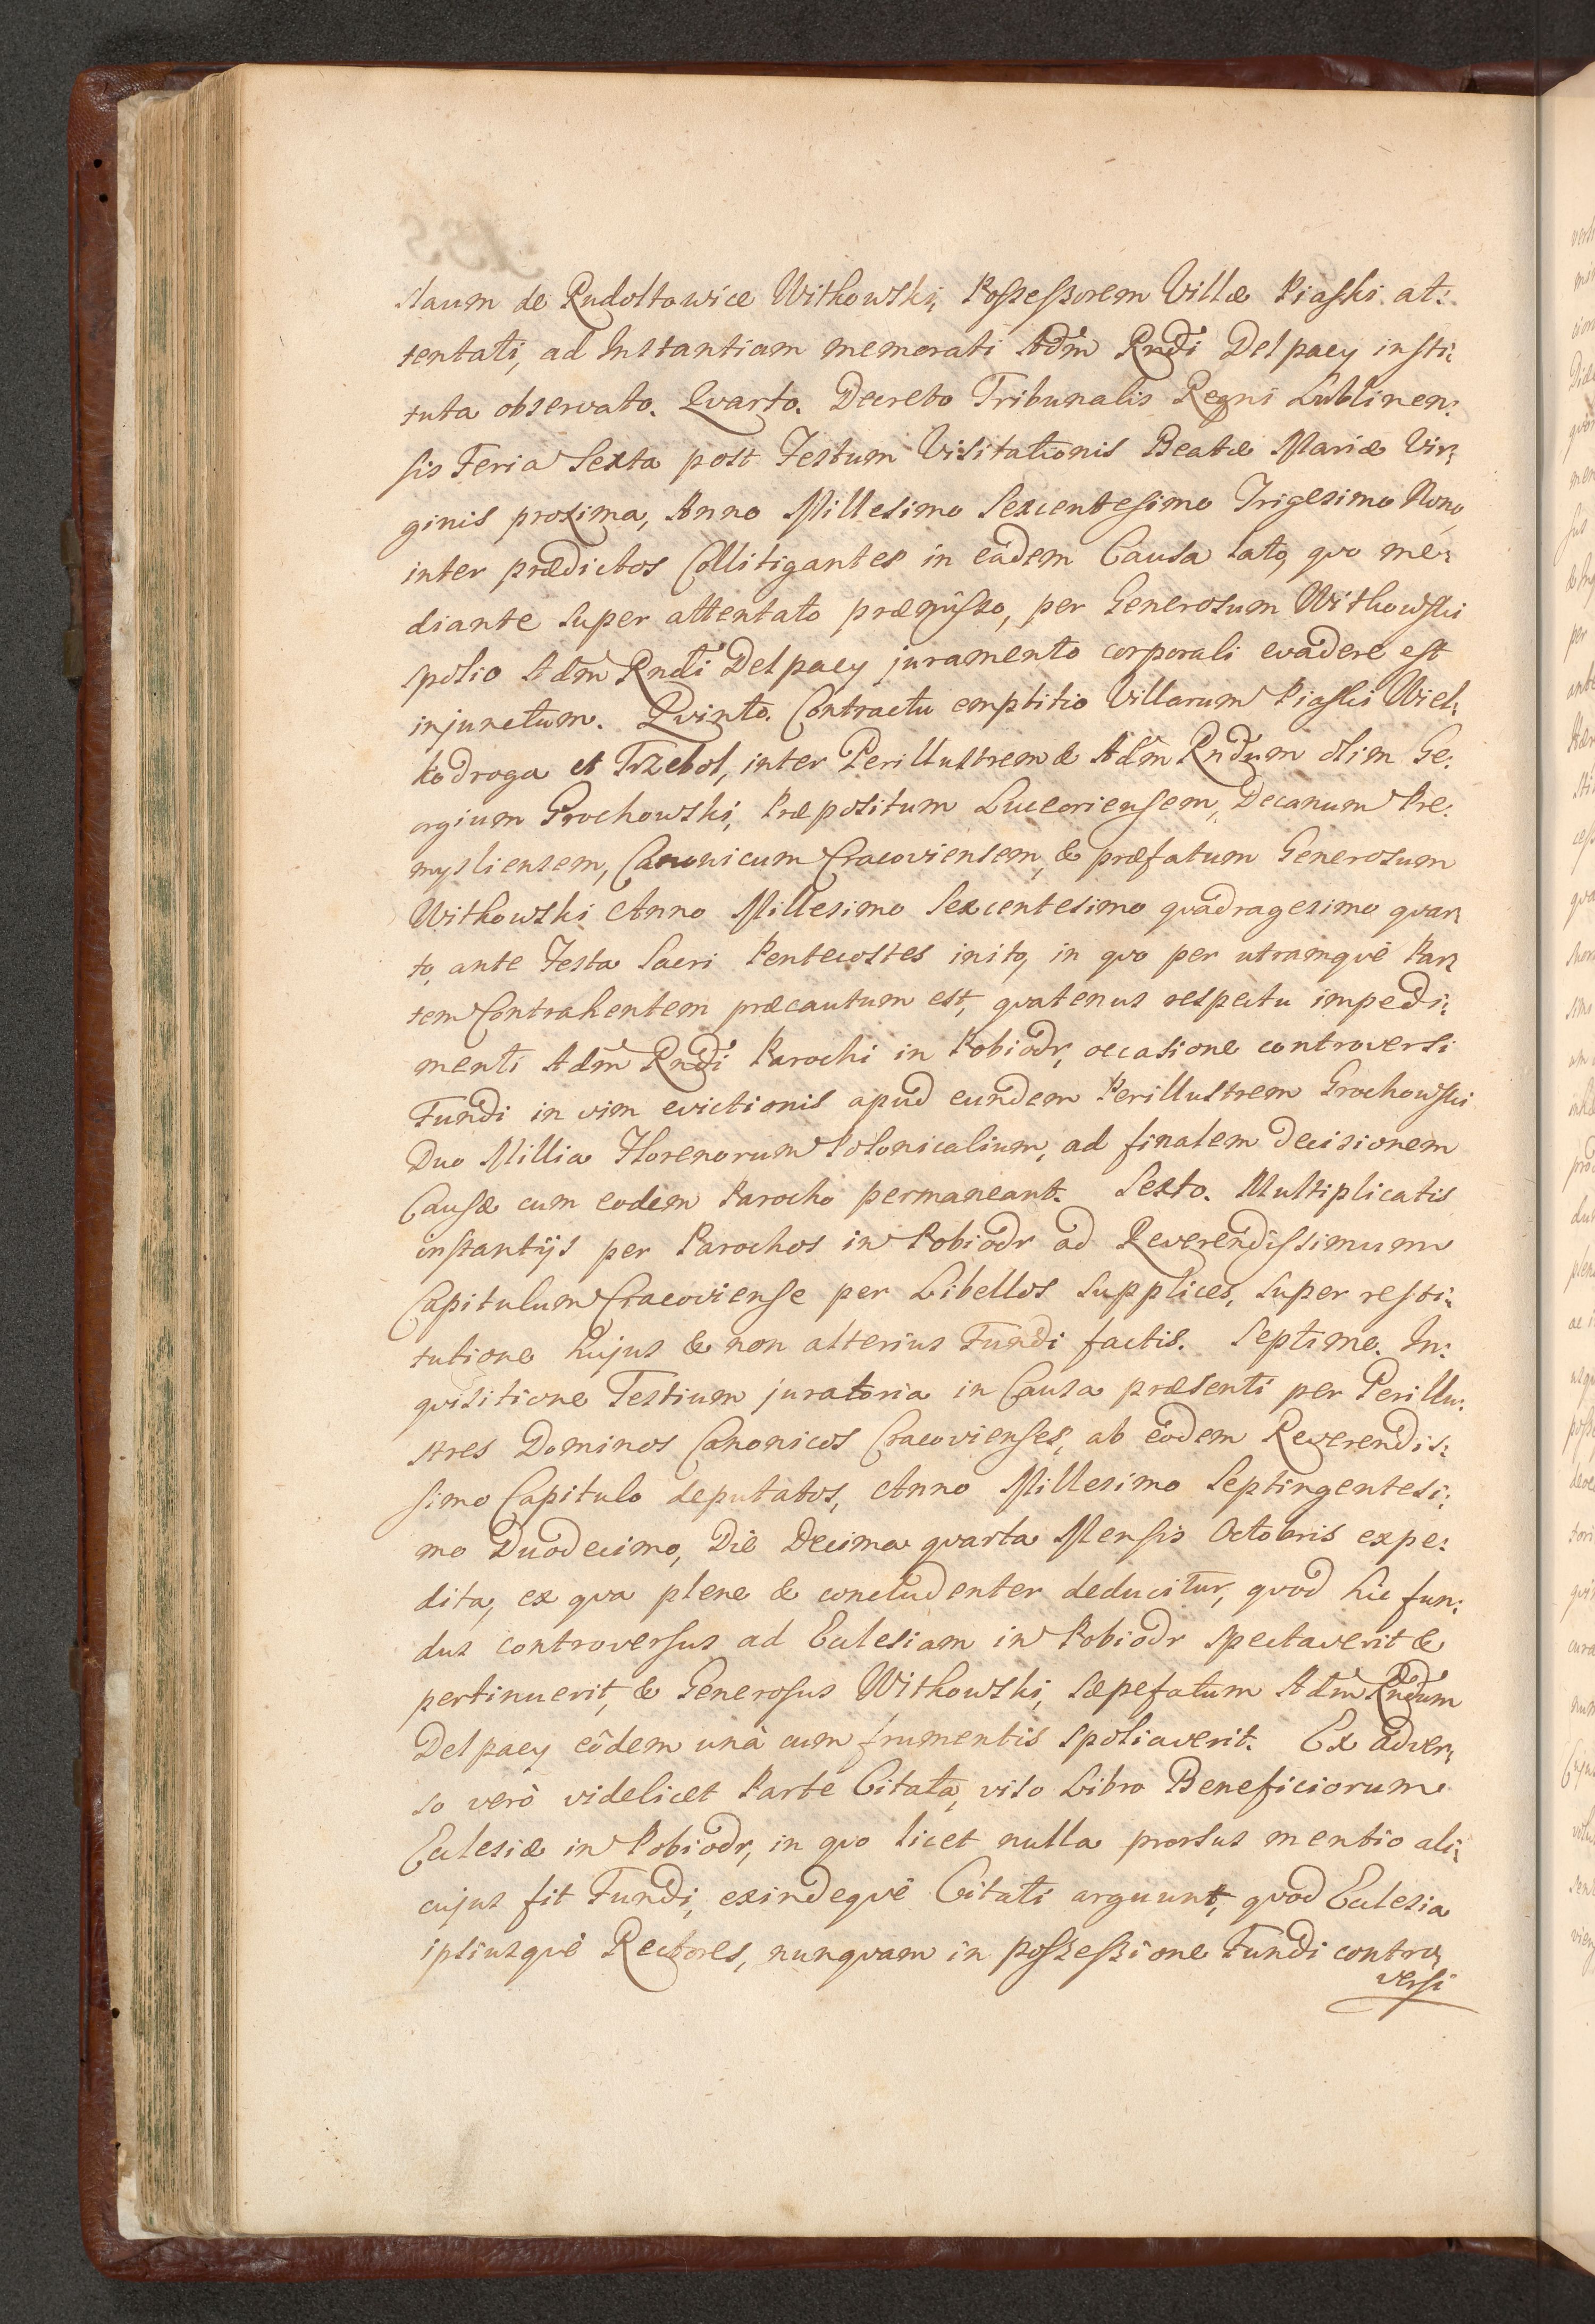 slaum de Rudoltowice Withowski, Possessorem Villæ Piaski at:
tentati, ad Instantiam memorati Adm Rndi Delpacy insti:
tuta observato. Qvarto. Decreto Tribunalis Regni Lublinen:
sis Feria Sexta post Festum Visitationis Beatæ Mariæ Vir:
ginis proxima, Anno Millesimo Sexcentesimo Trigesimo Nono,
inter prædictos Collitigantes in eâdem Causa lato, qvo me:
diante super attentato præmisso, per Generosum Withowski
spolio Adm Rndi Delpacy juramento corporali evadere est
injunctum. Qvinto. Contractu emptitio Villarum Piaski Wiel:
kodroga et Trzebol, inter Perillustrem & Adm Rndum olim Ge:
orgium Grochowski, Præpositum Luceoriensem, Decanum Pre:
mysliensem, Canonicum Cracoviensem, & præfatum Generosum
Withowski Anno Millesimo Sexcentesimo qvadragesimo qvar:
to, ante Festa Sacri Pentecostes inito, in qvo per utramqvè Par:
tem Contrahentem præcautum est, qvatenus respectu impedi:
menti Adm Rndi Parochi in Pobiodr, occasione controversi
Fundi in vim evictionis apud eundem Perillustrem Grochowski
Duo Millia Florenorum Polonicalium, ad finalem decisionem
Causæ cum eodem Parocho permaneant. Sexto. Multiplicatis
instantijs per Parochos in Pobiodr ad Reverendissimum
Capitulum Cracoviense per Libellos supplices, super resti:
tutione hujus & non alterius Fundi factis. Septimo. In:
qvisitione Testium juratoria in Causa præsenti per Perillu:
stres Dominos Canonicos Cracovienses, ab eodem Reverendis:
simo Capitulo deputatos, Anno Millesimo Septingentesi:
mo Duodecimo, Die Decima qvarta Mensis Octobris expe:
dita, ex qva plene & concludenter deducitur, qvod hic fun:
dus controversus ad Ecclesiam in Pobiodr spectaverit &
pertinuerit, & Generosus Withowski, sæpefatum Adm Rndum
Delpacy eôdem unà cum frumentis spoliaverit. Ex adver:
so verò videlicet Parte Citata, viso Libro Beneficiorum
Ecclesiæ in Pobiodr, in qvo licet nulla prorsus mentio ali:
cujus fit Fundi, exindeqvè Citati arguunt, qvod Ecclesia
ipsiusqvè Rectores, nunqvam in possessione Fundi contro:
versi